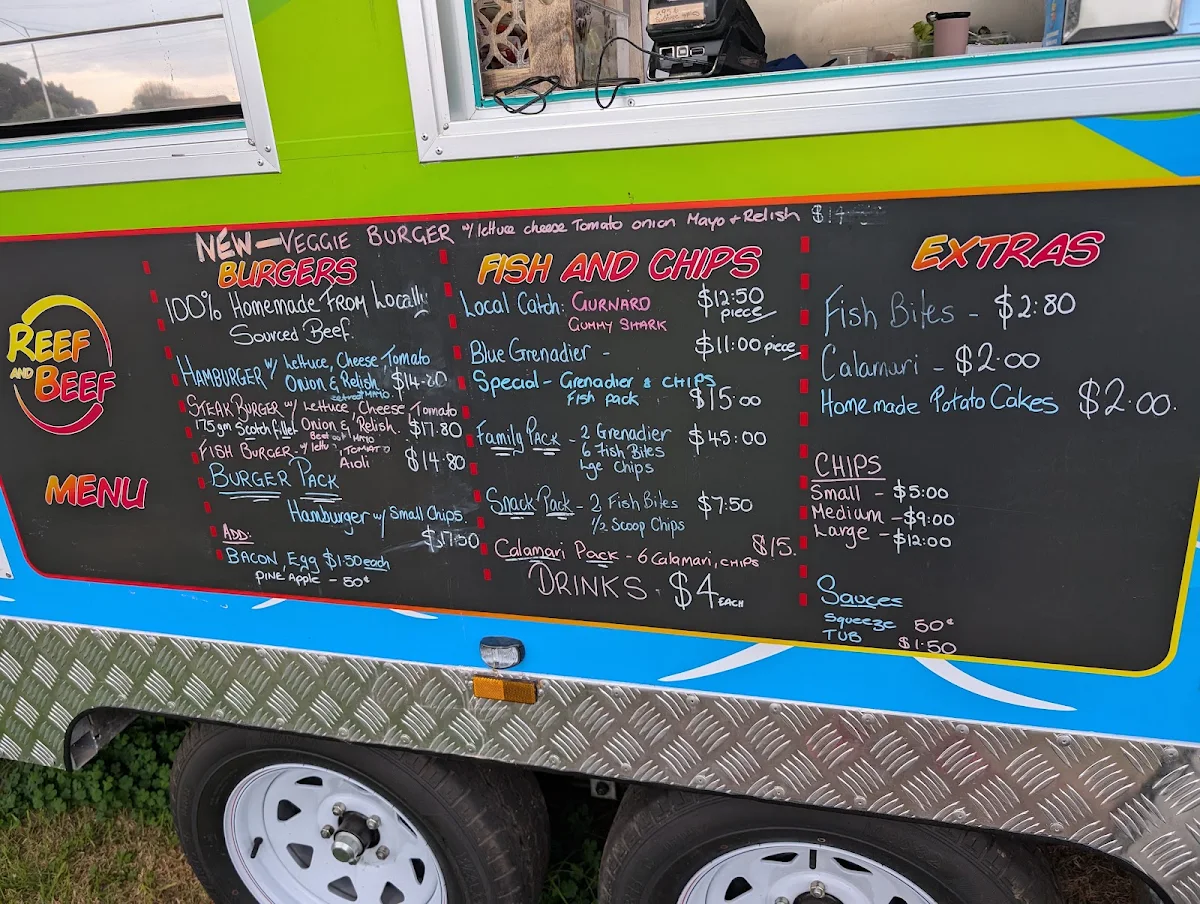 NEW - VEGGIE BURGER w/ lettuce cheese Tomato onion Mayo + Relish $14
REEF
AND
BEEF
MENU
BURGERS
100% Homemade From Locally
Sourced Beef.
HAMBURGER w/ Lettuce, Cheese, Tomato
Onion & Relish $14.80
STEAK BURGER w/ Lettuce, Cheese, Tomato
175gm Scotch fillet Onion & Relish. $17.80
FISH BURGER - w/ lettu TOMATO
Aioli $14.80
BURGER PACK
Hamburger w/ Small Chips.
$17.50
ADD:
BACON, Egg $1.50 each
PINEAPPLE - 50¢
FISH AND CHIPS
Local Catch: GURNARD $12.50
GUMMY SHARK piece
Blue Grenadier - $11.00 piece
Special - Grenadier & CHIPS
Fish pack $15.00
Family Pack - 2 Grenadier $45.00
6 Fish Bites
Lge Chips
Snack Pack - 2 Fish Bites $7.50
1/2 Scoop Chips
Calamari Pack - 6 Calamari, CHIPS $15.
DRINKS. $4 EACH
EXTRAS
Fish Bites - $2.80
Calamari - $2.00
Homemade Potato Cakes $2.00.
CHIPS
Small - $5.00
Medium - $9.00
Large - $12.00
Sauces
Squeeze 50¢
TUB $1.50